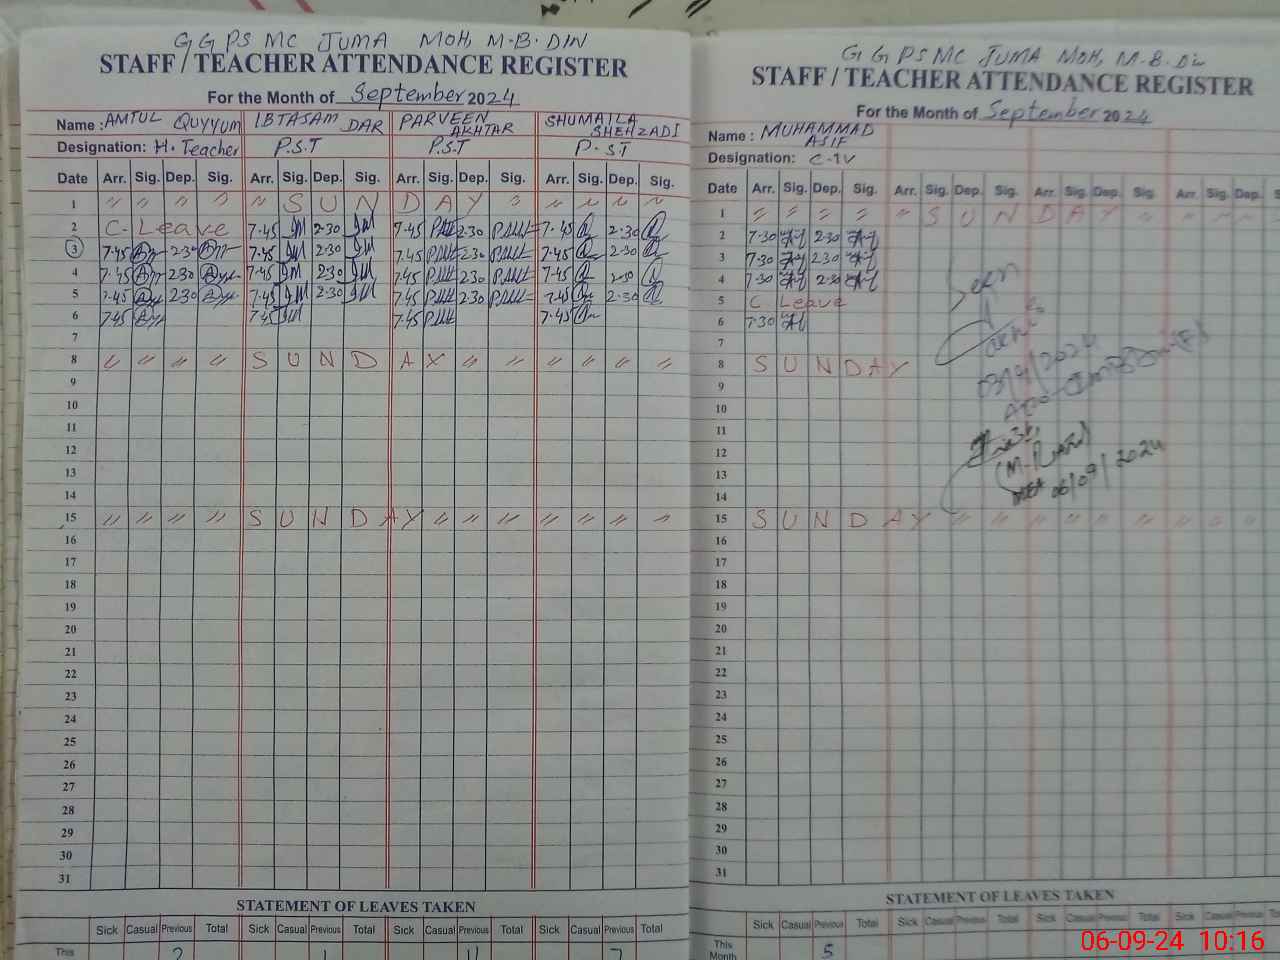 G G P S MC JUMA MOH, M.B. DIN
STAFF / TEACHER ATTENDANCE REGISTER
For the Month of September 2024
Name : AMTUL QUYYUM IBTASAM DAR PARVEEN AKHTAR SHUMAILA SHEHZADI
Designation: H. Teacher P.S.T P.S.T P.S.T
Date Arr. Sig. Dep. Sig. Arr. Sig. Dep. Sig. Arr. Sig. Dep. Sig. Arr. Sig. Dep. Sig.
1 " " " " " S U N D A Y " " " " "
2 C. Leave 7.45 2.30 7.45 2.30 7.45 2.30
3 7.45 2.30 7.45 2.30 7.45 2.30 7.45 2.30
4 7.45 2.30 7.45 2.30 7.45 2.30 7.45 2.30
5 7.45 2.30 7.45 2.30 7.45 2.30 7.45 2.30
6 7.45 7.45 7.45 7.45
7
8 " " " " S U N D A Y " " " " " "
9
10
11
12
13
14
15 " " " " S U N D A Y " " " " " " "
16
17
18
19
20
21
22
23
24
25
26
27
28
29
30
31
STATEMENT OF LEAVES TAKEN
Sick Casual Previous Total Sick Casual Previous Total Sick Casual Previous Total Sick Casual Previous Total
This
G G P S MC JUMA MOH, M.B. Din
STAFF / TEACHER ATTENDANCE REGISTER
For the Month of September 2024
Name : MUHAMMAD ASIF
Designation: C-IV
Date Arr. Sig. Dep. Sig. Arr. Sig. Dep. Sig. Arr. Sig. Dep. Sig. Arr. Sig. Dep.
1 " " " " " S U N D A Y " " "
2 7.30 2.30
3 7.30 2.30
4 7.30 2.30
5 C Leave
6 7.30
7
8 S U N D A Y
9
10
11
12
13
14
15 S U N D A Y " " " " " " " " "
16
17
18
19
20
21
22
23
24
25
26
27
28
29
30
31
Seen
03/9/2024
06/09/2024
STATEMENT OF LEAVES TAKEN
Sick Casual Previous Total Sick Casual Previous Total Sick Casual Previous Total Sick Casual Previous
This Month 5
06-09-24 10:16